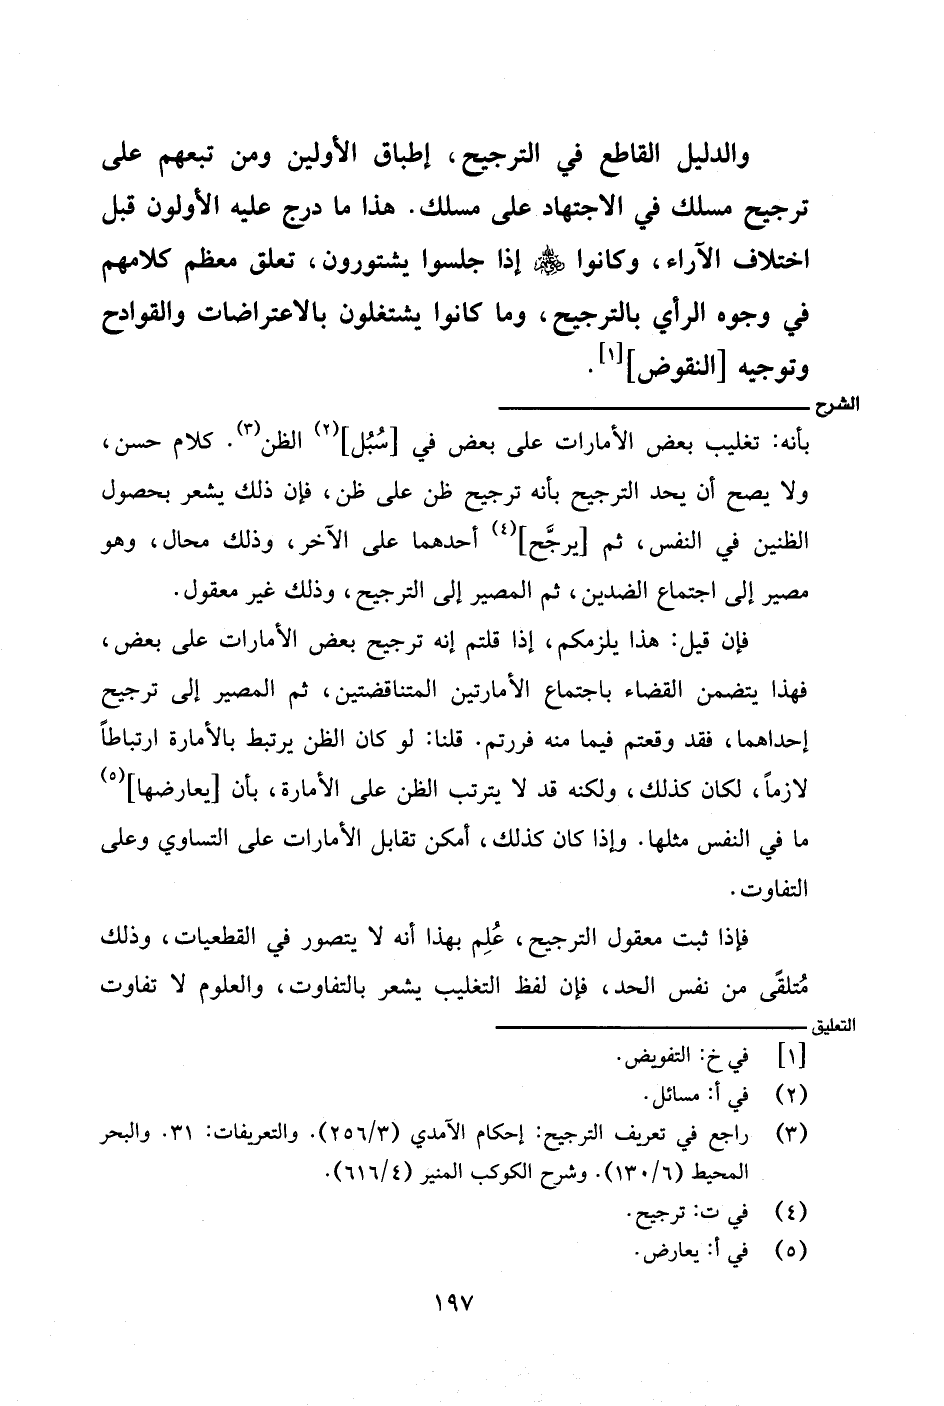 والدليل القاطع في الترجيح، إطباق الأولين ومن تبعهم على
ترجيح مسلك في الاجتهاد على مسلك. هذا ما درج عليه الأولون قبل
اختلاف الآراء، وكانوا ﵃ إذا جلسوا يشتورون، تعلق معظم كلامهم
في وجوه الرأي بالترجيح، وما كانوا يشتغلون بالاعتراضات والقوادح
وتوجيه [النقوض][١].
الشرح
بأنه: تغليب بعض الأمارات على بعض في [سُبُل](٢) الظن(٣). كلام حسن،
ولا يصح أن يحد الترجيح بأنه ترجيح ظن على ظن، فإن ذلك يشعر بحصول
الظنين في النفس، ثم [يرجَّح](٤) أحدهما على الآخر، وذلك محال، وهو
مصير إلى اجتماع الضدين، ثم المصير إلى الترجيح، وذلك غير معقول.
فإن قيل: هذا يلزمكم، إذا قلتم إنه ترجيح بعض الأمارات على بعض،
فهذا يتضمن القضاء باجتماع الأمارتين المتناقضتين، ثم المصير إلى ترجيح
إحداهما، فقد وقعتم فيما منه فررتم. قلنا: لو كان الظن يرتبط بالأمارة ارتباطاً
لازماً، لكان كذلك، ولكنه قد لا يترتب الظن على الأمارة، بأن [يعارضها](٥)
ما في النفس مثلها. وإذا كان كذلك، أمكن تقابل الأمارات على التساوي وعلى
التفاوت.
فإذا ثبت معقول الترجيح، عُلِم بهذا أنه لا يتصور في القطعيات، وذلك
مُتلقًى من نفس الحد، فإن لفظ التغليب يشعر بالتفاوت، والعلوم لا تفاوت
التعليق
[١] في خ: التفويض.
(٢) في أ: مسائل.
(٣) راجع في تعريف الترجيح: إحكام الآمدي (٢٥٦/٣). والتعريفات: ٣١. والبحر
المحيط (١٣٠/٦). وشرح الكوكب المنير (٦١٦/٤).
(٤) في ت: ترجيح.
(٥) في أ: يعارض.
١٩٧